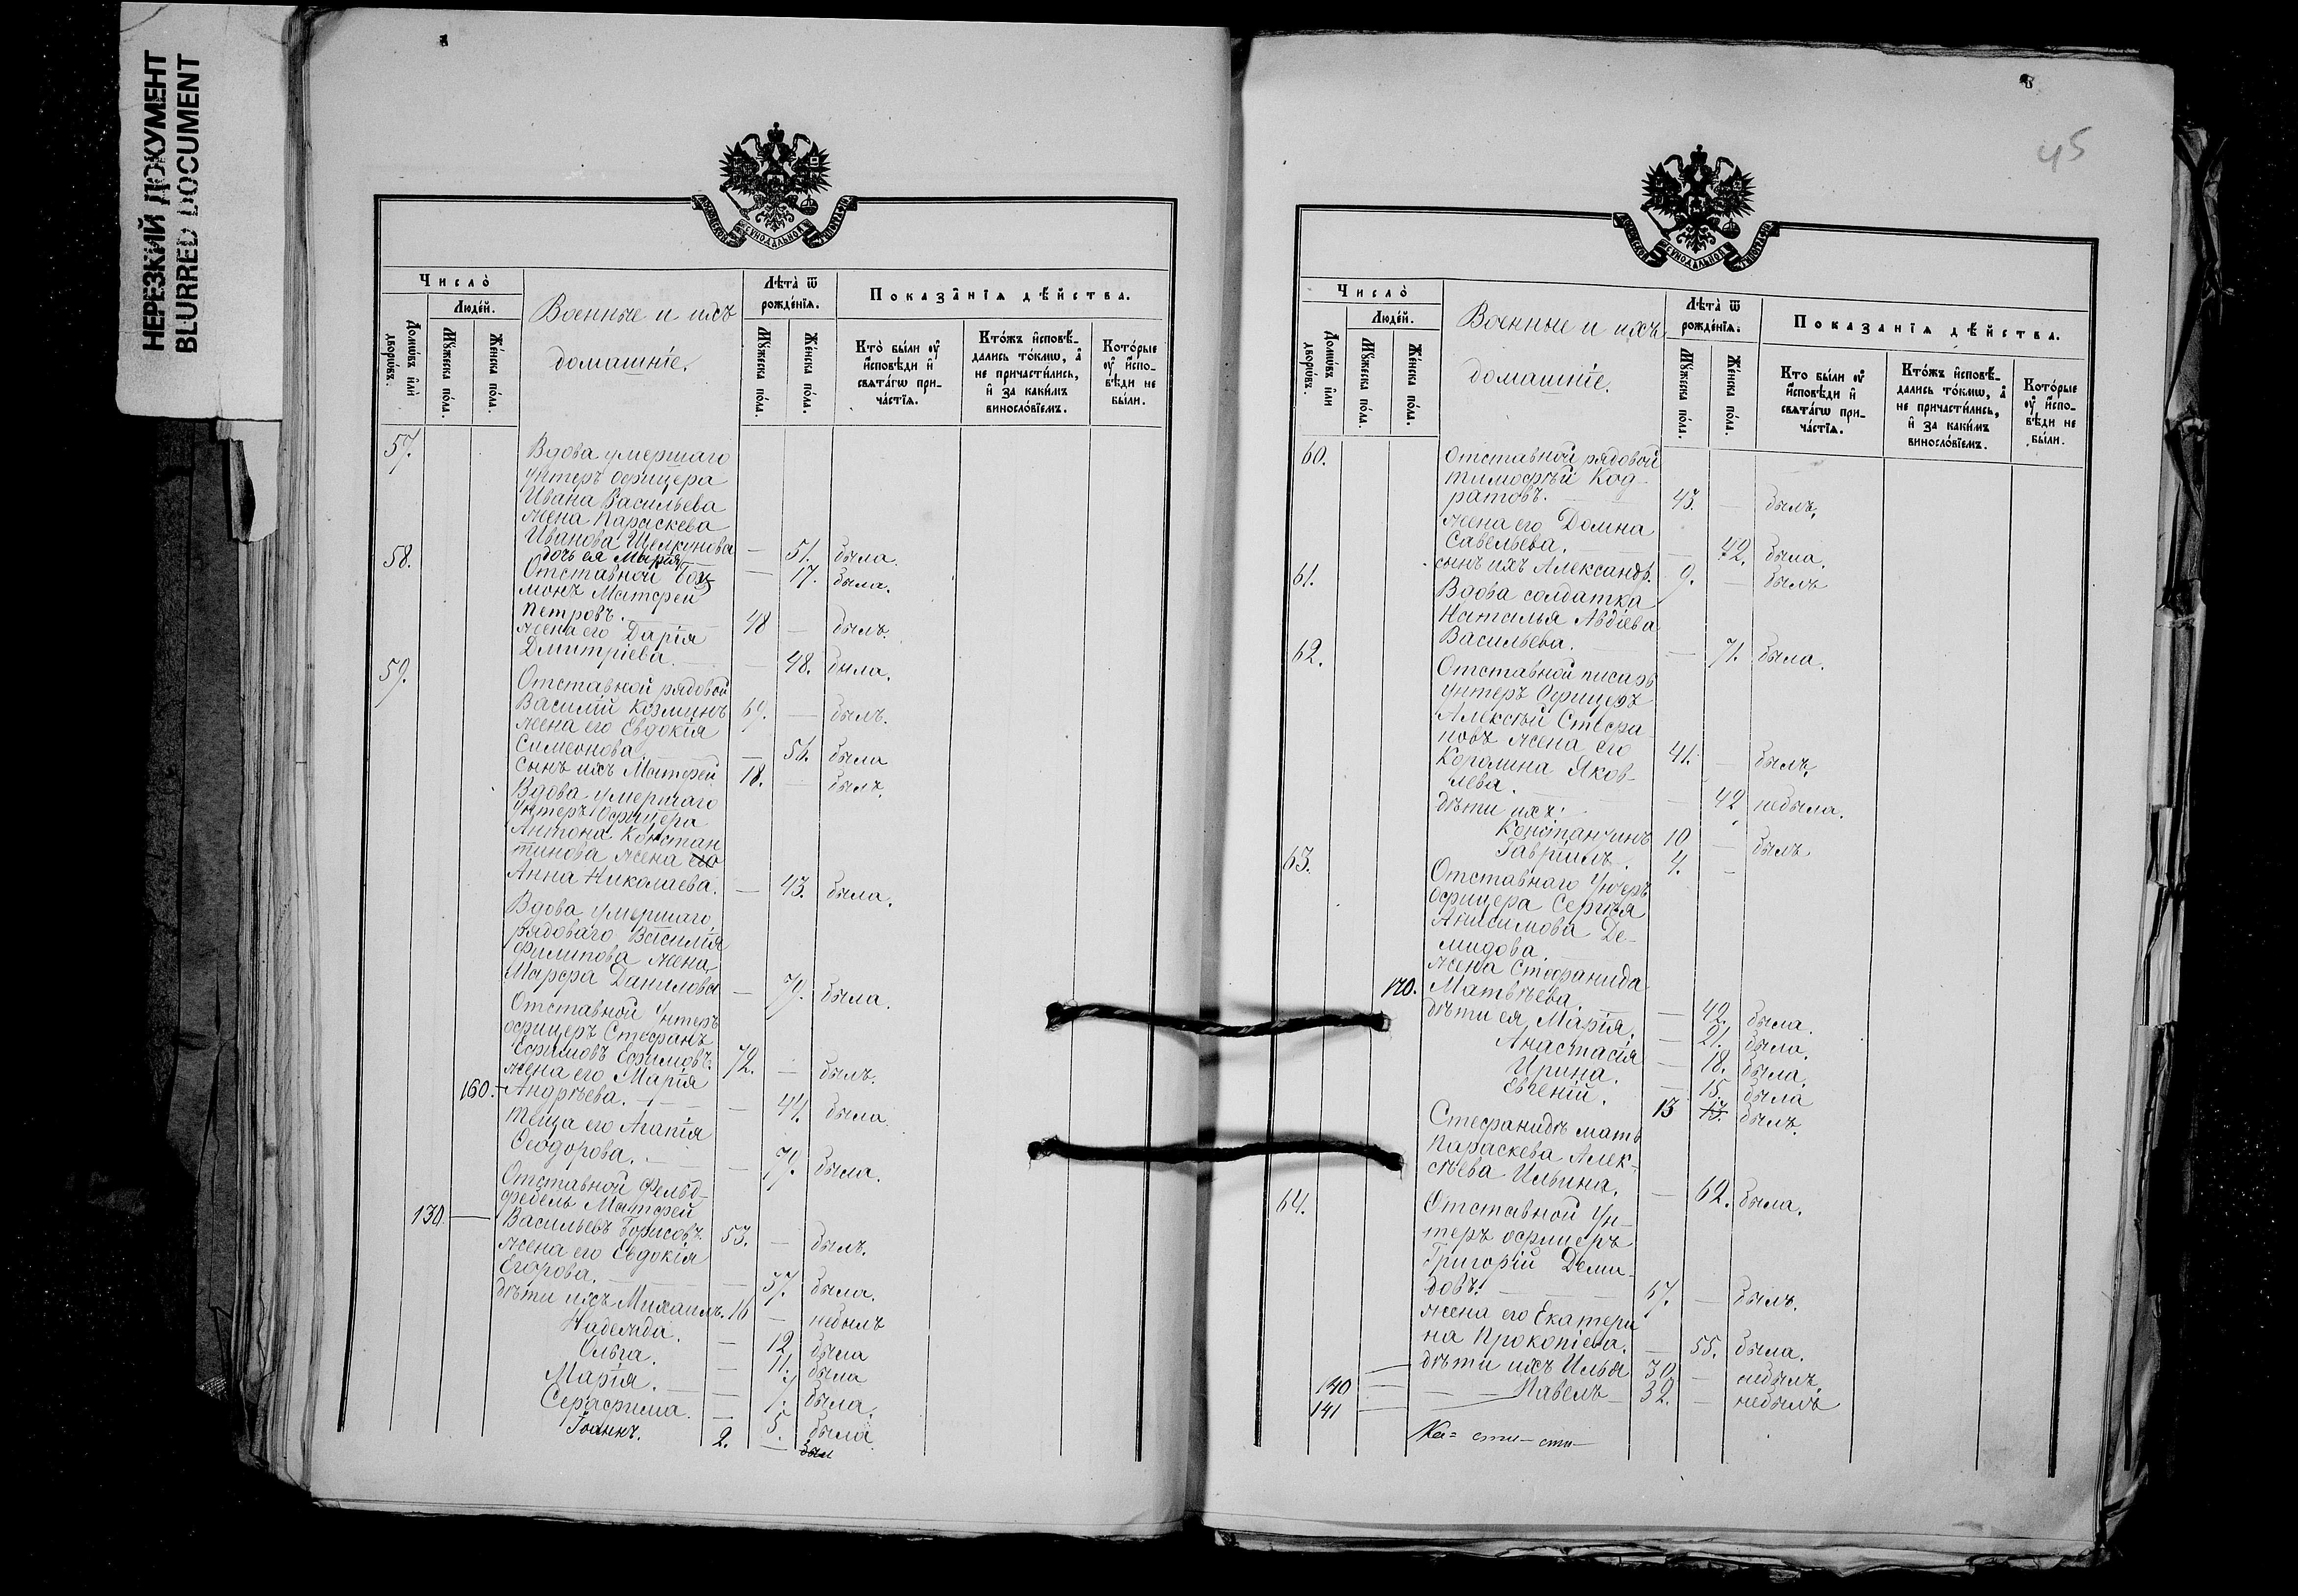 НЕРЕЗКИЙ ДОКУМЕНТ
BLURRED DOCUMENT
Число̀
Домѡвъ и҆лѝ дворѡ́въ.
Люде́й.
Мꙋ́жеска по́ла.
Же́нска по́ла.
Военные и ихъ
домашніе.
Лѣ́та ѿ рожде́нїѧ.
Мꙋ́жеска по́ла.
Же́нска по́ла.
Показа̑нїѧ дѣ́йства.
Кто̀ бы́ли ᲂу҆ и҆́сповѣди и҆ свѧта́гѡ прича́стїѧ.
Кто́жъ и҆сповѣ́дались то́кмѡ, а҆ не причасти́лись, и҆ за каки́мъ винослові́емъ.
Кото́рые ᲂу҆ и҆́сповѣди не бы́ли.
57.
Вдова умершаго
унтеръ офицера
Ивана Васильева
жена Параскева
Иванова Щелкунова — 51. была.
дочь ея Марія — 17. была.
58.
Отставной Боц
монъ Матфей
Петровъ. 48 — былъ.
жена его Дарія
Дмитріева. — 48. была.
59.
Отставной рядовой
Василій Козминъ 67. — былъ.
жена его Евдокія
Симеонова — 56. была
сынъ ихъ Матфей 18. — былъ.
Вдова умершаго
Унтеръ Офицера
Антона Констан
тинова жена его
Анна Николаева. — 43. была.
Вдова умершаго
рядоваго Василія
Филипова жена
Марфа Данилова — 71. была.
Отставной Унтеръ
офицеръ Стефанъ
Ефимовъ Ефимовъ. 72. — былъ.
жена его Марія
160. Андрѣева. — 44. была
теща его Агапія
Ѳеодорова. — 71. была.
Отставной Фельд-
фебель Матфей
130 Васильевъ Борисовъ 53. — былъ.
жена его Евдокія
Егорова. — 37. была.
дѣти ихъ Михаилъ. 16 — небылъ
Надежда. — 12 была
Ольга. — 11. была
Марія. — 7. была.
Серафима. — 5. была
Іоаннъ. 2. — был
45
Число̀
Домѡвъ и҆лѝ дворѡ́въ.
Люде́й.
Мꙋ́жеска по́ла.
Же́нска по́ла.
Военные и ихъ
домашніе.
Лѣ́та ѿ рожде́нїѧ.
Мꙋ́жеска по́ла.
Же́нска по́ла.
Показа̑нїѧ дѣ́йства.
Кто̀ бы́ли ᲂу҆ и҆́сповѣди и҆ свѧта́гѡ прича́стїѧ.
Кто́жъ и҆сповѣ́дались то́кмѡ, а҆ не причасти́лись, и҆ за каки́мъ винослові́емъ.
Кото́рые ᲂу҆ и҆́сповѣди не бы́ли.
60.
Отставной рядовой
Тимофѣй Код-
ратовъ. 43. — былъ.
жена его Домна
Савельева. — 42. была.
сынъ ихъ Александр. 9. — былъ
61.
Вдова солдатка
Наталья Авдіева
Васильева. — 71. была.
62.
Отставной писарь
унтеръ Офицеръ
Алексѣй Стефа
новъ жена его 41. — былъ.
Королина Яков-
лева. — 42 небыла.
дѣти ихъ:
Константинъ 10 — былъ
Гавріилъ. 4. —
63.
Отставнаго Унтеръ
офицера Сергѣя
Анисимова Де-
мидова.
жена Стефанида
170. Матвѣева. — 42. была.
дѣти ея, Марія, — 21. была.
Анастасія — 18. была.
Ирина. — 15. была
Евгеній. 13 13. былъ.
Стефанидѣ мать
Параскева Алек-
сѣева Ильина. — 62. была.
64.
Отставной Ун-
теръ офицеръ
Григорій Деми-
довъ. 67. — былъ.
жена его Екатери
на Прокопіева. — 55. была.
дѣти ихъ Илья 30 — небылъ
140 — Павелъ 32. — небылъ
141